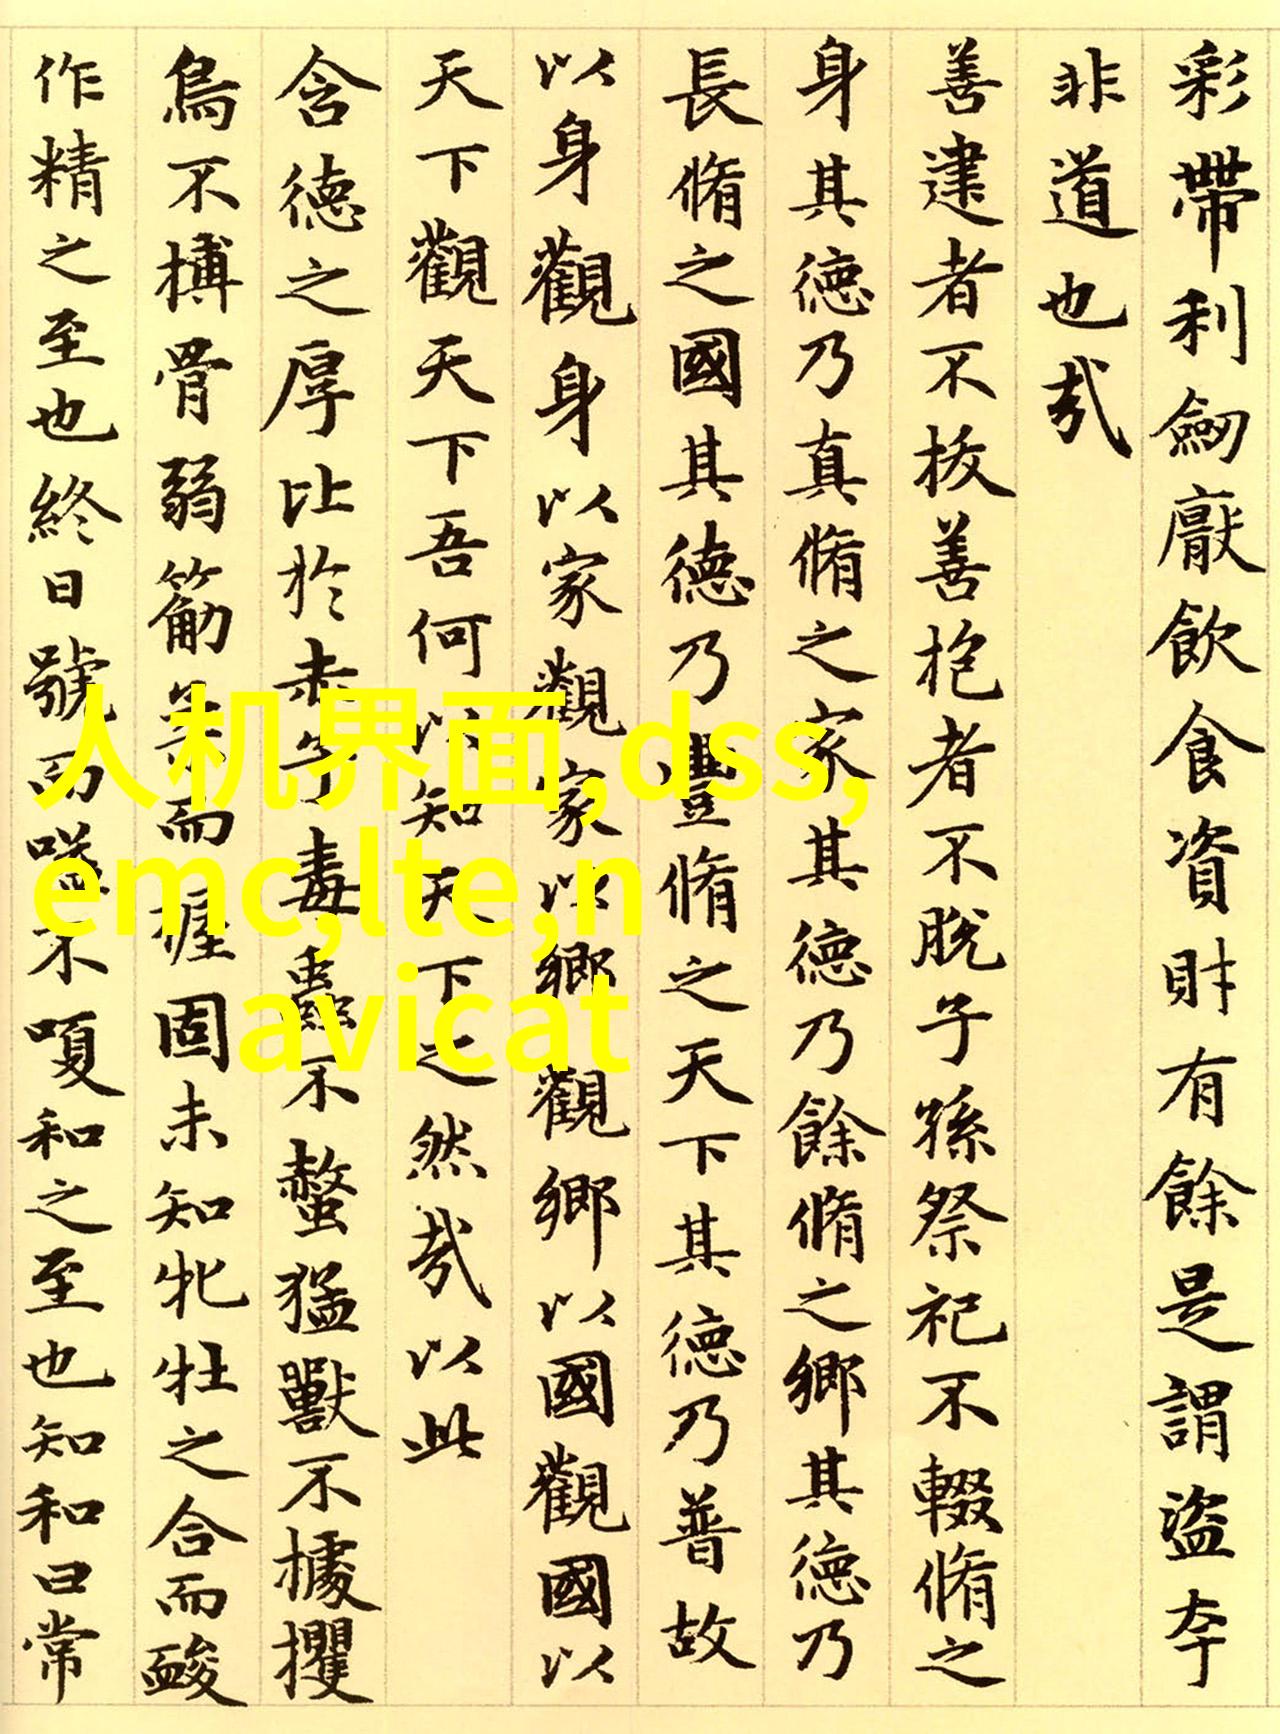 彩帶利劒厭飲食資財有餘是謂盜夸
非道也哉
善建者不拔善抱者不脫子孫祭祀不輟脩之
身其德乃真脩之家其德乃餘脩之鄉其德乃
長脩之國其德乃豐脩之天下其德乃普故
以身觀身以家觀家以鄉觀鄉以國觀國以
天下觀天下吾何以知天下之然哉以此
含德之厚比於赤子毒蟲不螫猛獸不據攫
鳥不搏骨弱筋柔而握固未知牝牡之合而
作精之至也終日號而嗌不嗄和之至也知和曰常
人机界面,dss,
emc,lte,n
avicat